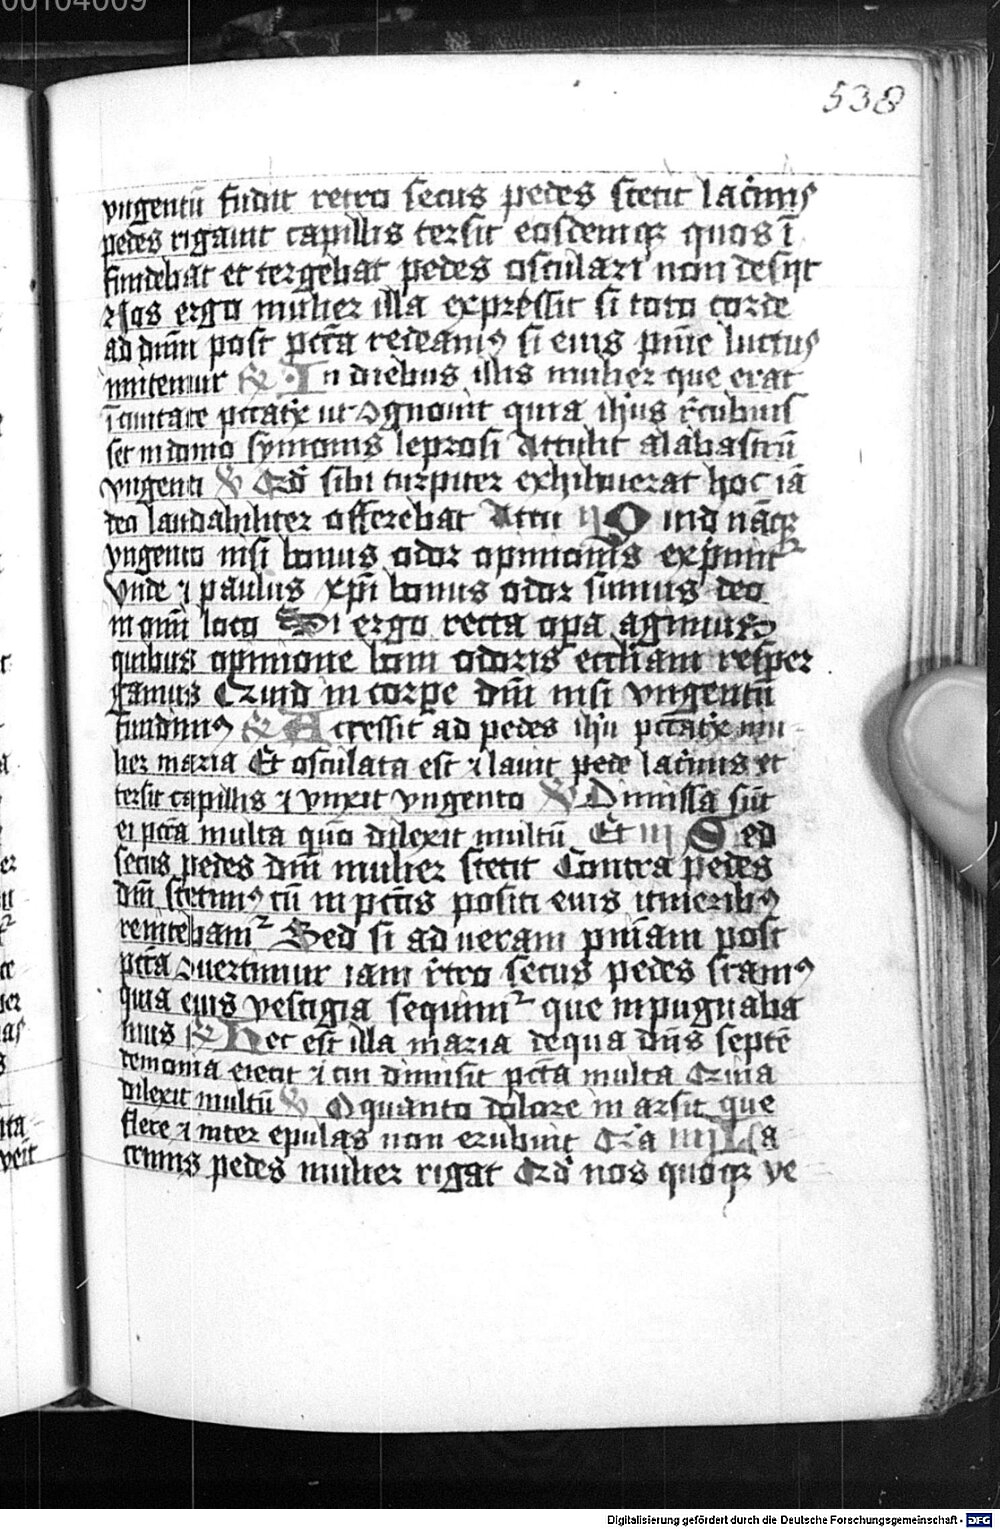 00104009
538
vngentū fudit retro secus pedes stetit lac̃mis
pedes rigauit capillis tersit eosdemqꝫ quos ī
fundebat et tergebat pedes osculari non desijt
ergo mulier illa expressit si toto corde
ad dn̄m post pctā redeamꝰ si eius pn̄ie luctus
imitemur ℟ In diebus illis mulier que erat
ī ciuitate pctatrix ut ꝯgnouit quia ih̄us r̄cubuis
set in domo symonis leprosi Attulit alabastrū
vngenti ℣ Qd̄ sibi turpiter exhibuerat hoc iā
deo laudabiliter offerebat Attu ij Quid nāqꝫ
vngento nisi bonus odor opinionis exp̄imit
Vnde ⁊ paulus xp̄i bonus odor sumus deo
in om̄i loco Si ergo recta op̄a agimus
quibus opinione boni odoris eccl̄iam resper
gamus Quid in corpe dn̄i nisi vngentū
fundimꝰ ℟ Accessit ad pedes ih̄u pctatrix mu
lier maria Et osculata est ⁊ lauit pede lac̃mis et
tersit capillis ⁊ vnxit vngento ℣ Dimissa sūt
ei pctā multa qm̄ dilexit multū Et iij Sed
secus pedes dn̄i mulier stetit Contra pedes
dn̄i stetimꝰ cū in pctīs positi eius itineribꝰ
renitebamur Sed si ad ueram pn̄iam post
pctā ꝯuertimur iam r̄tro secus pedes stamꝰ
quia eius vestigia sequimur que inpugnaba
mus ℟ Hec est illa maria de qua dn̄s septē
demonia eiecit ⁊ cui dimisit pctā multa Quia
dilexit multū ℣ O quanto dolore in arsit que
flere ⁊ inter epulas non erubuit Qia iiij La
crimis pedes mulier rigat Qd̄ nos quoqꝫ ve
Digitalisierung gefördert durch die Deutsche Forschungsgemeinschaft - DFG